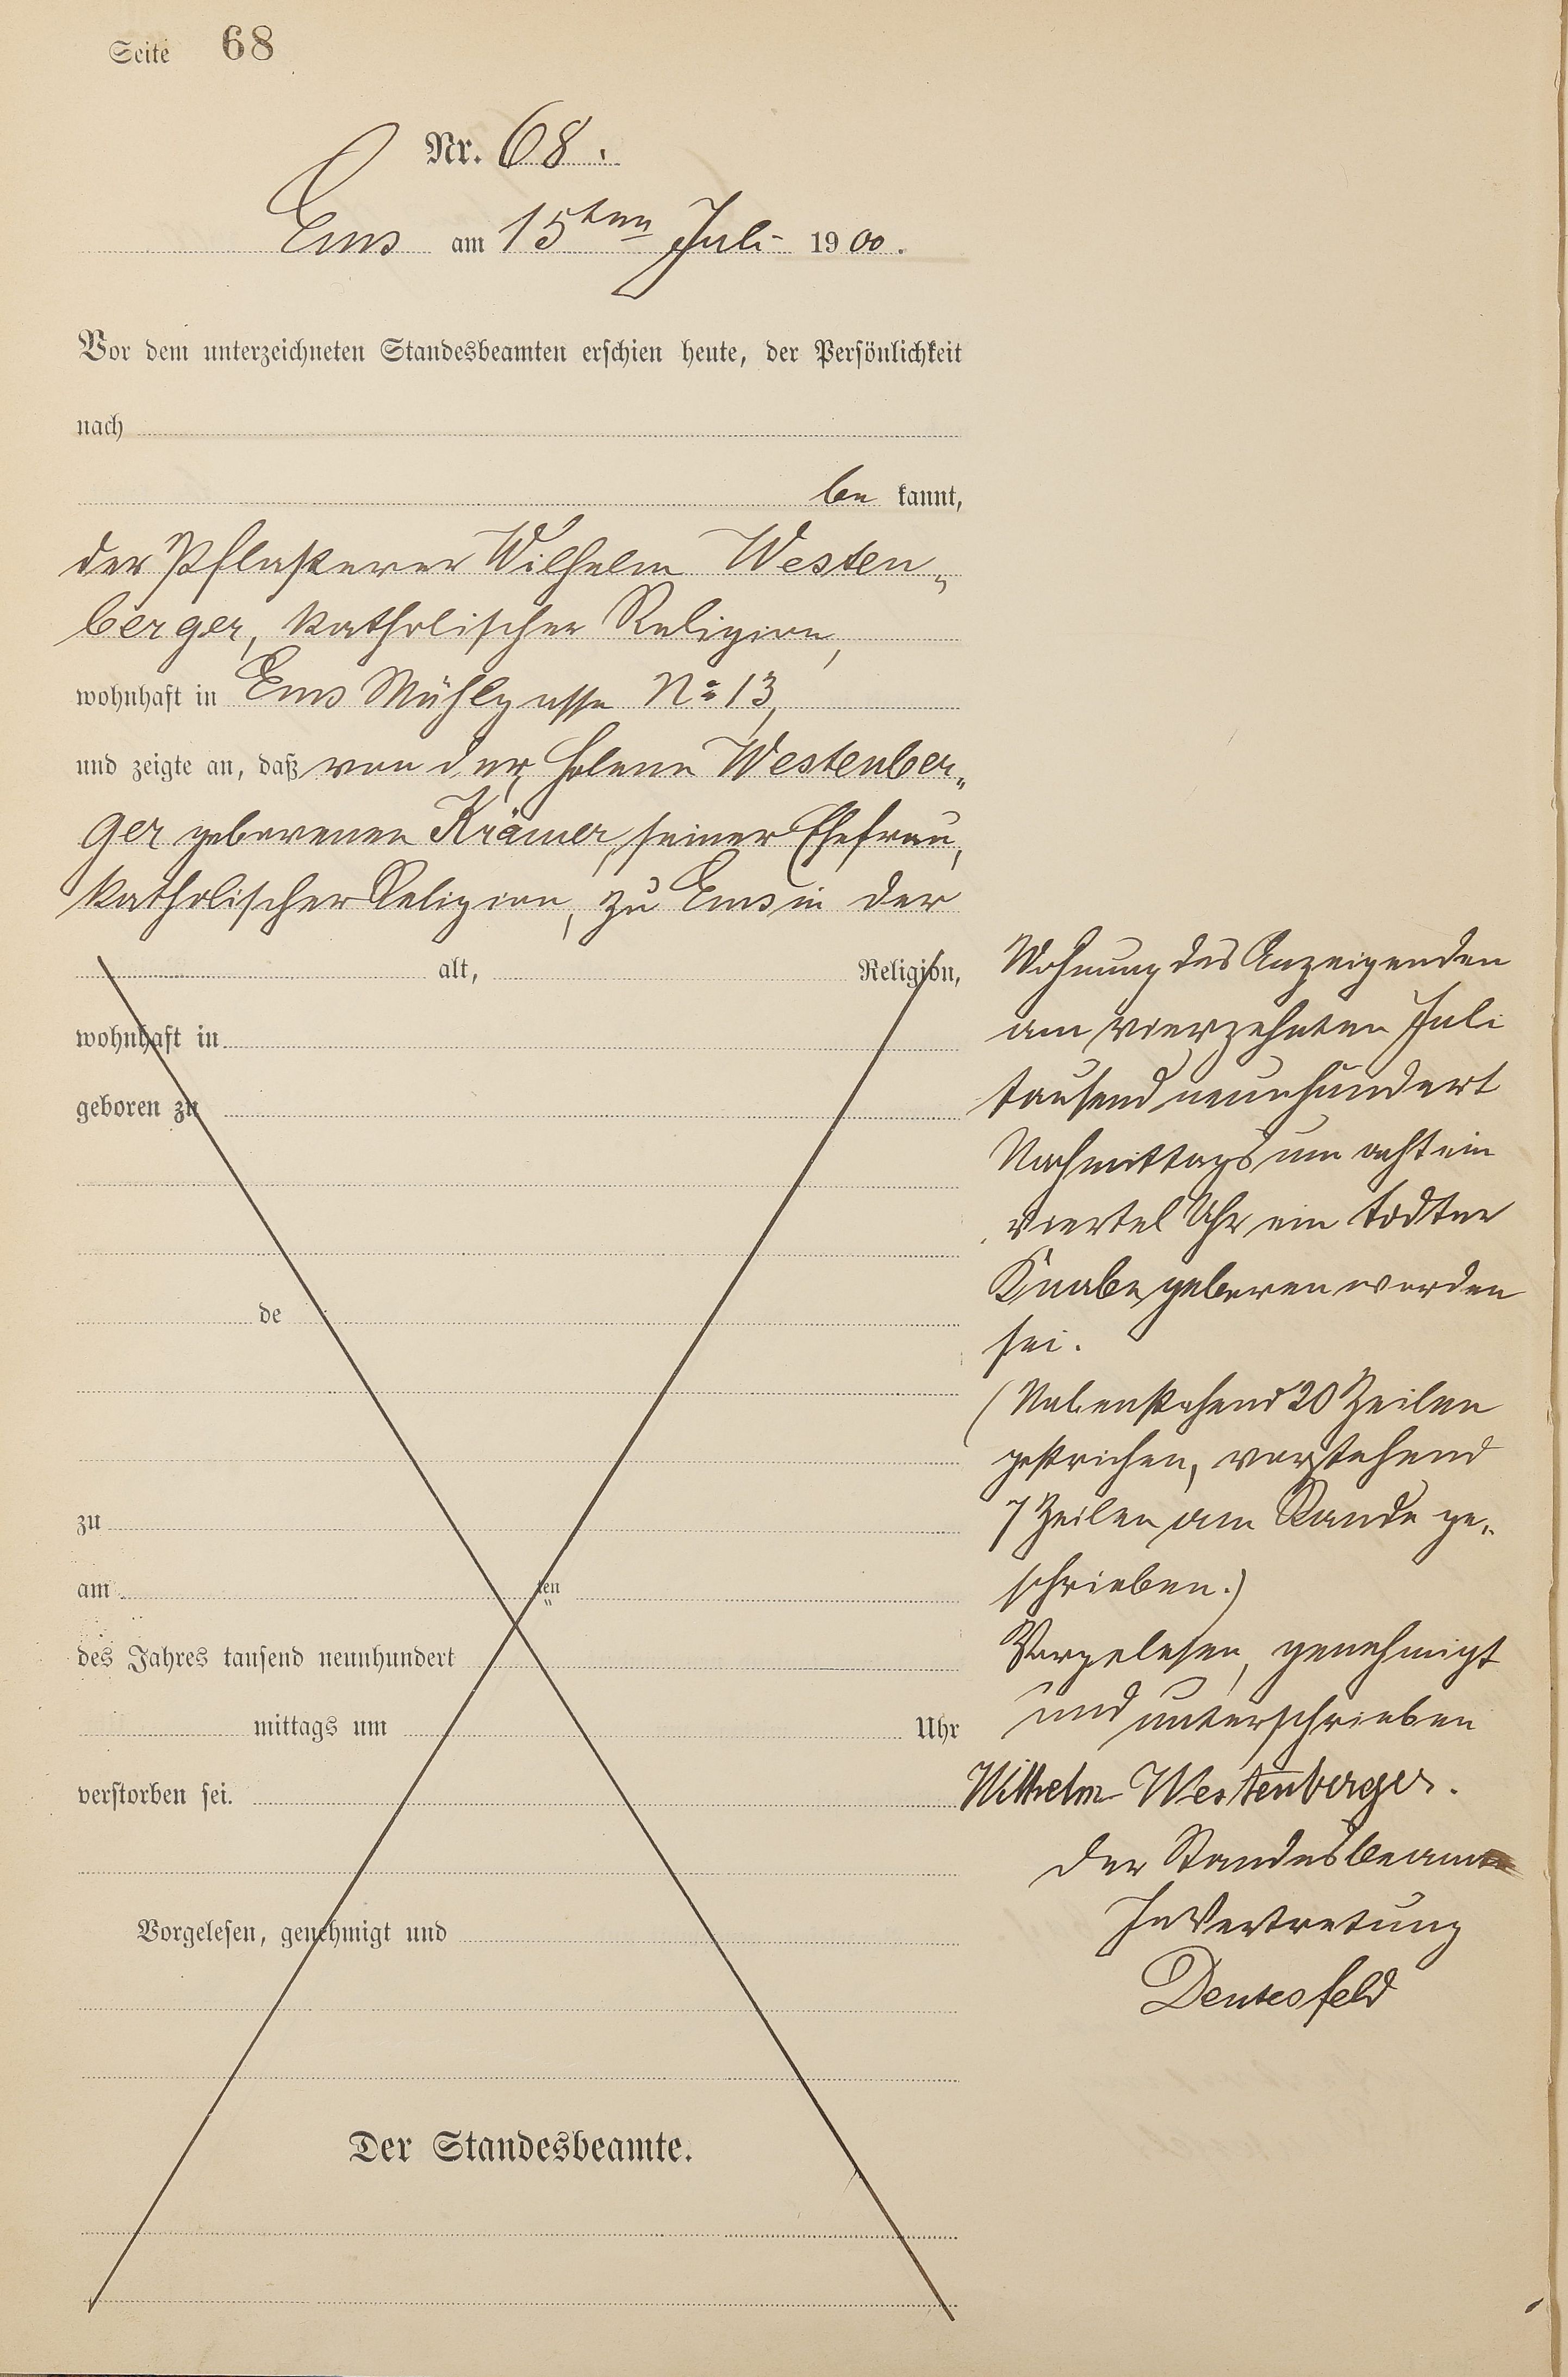 Seite 68
Nr. 68.
Ems am 15ten Juli 1900.
Vor dem unterzeichneten Standesbeamten erschien heute, der Persönlichkeit
nach
be kannt,
der Pflasterer Wilhelm Westen„
berger, katholischer Religion,
wohnhaft in Ems Mühlgasse No 13,
und zeigte an, daß von der Helene Westenber„
ger geborenen Krämer, seiner Ehefrau,
katholischer Religion, zu Ems in der
alt, Religion,
wohnhaft in
geboren zu
de
zu
am ten
des Jahres tausend neunhundert
mittags um Uhr
verstorben sei.
Vorgelesen, genehmigt und
Der Standesbeamte.
Wohnung des Anzeigenden
am vierzehnten Juli
tausend neunhundert
Nachmittags um acht ein
viertel Uhr ein todter
Knabe geboren worden
sei.
(Nebenstehend 20 Zeilen
gestrichen, vorstehend
7 Zeilen am Rande ge„
schrieben.)
Vorgelesen, genehmigt
und unterschrieben
Wilhelm Westenberger.
Der Standesbeamte
In Vertretung